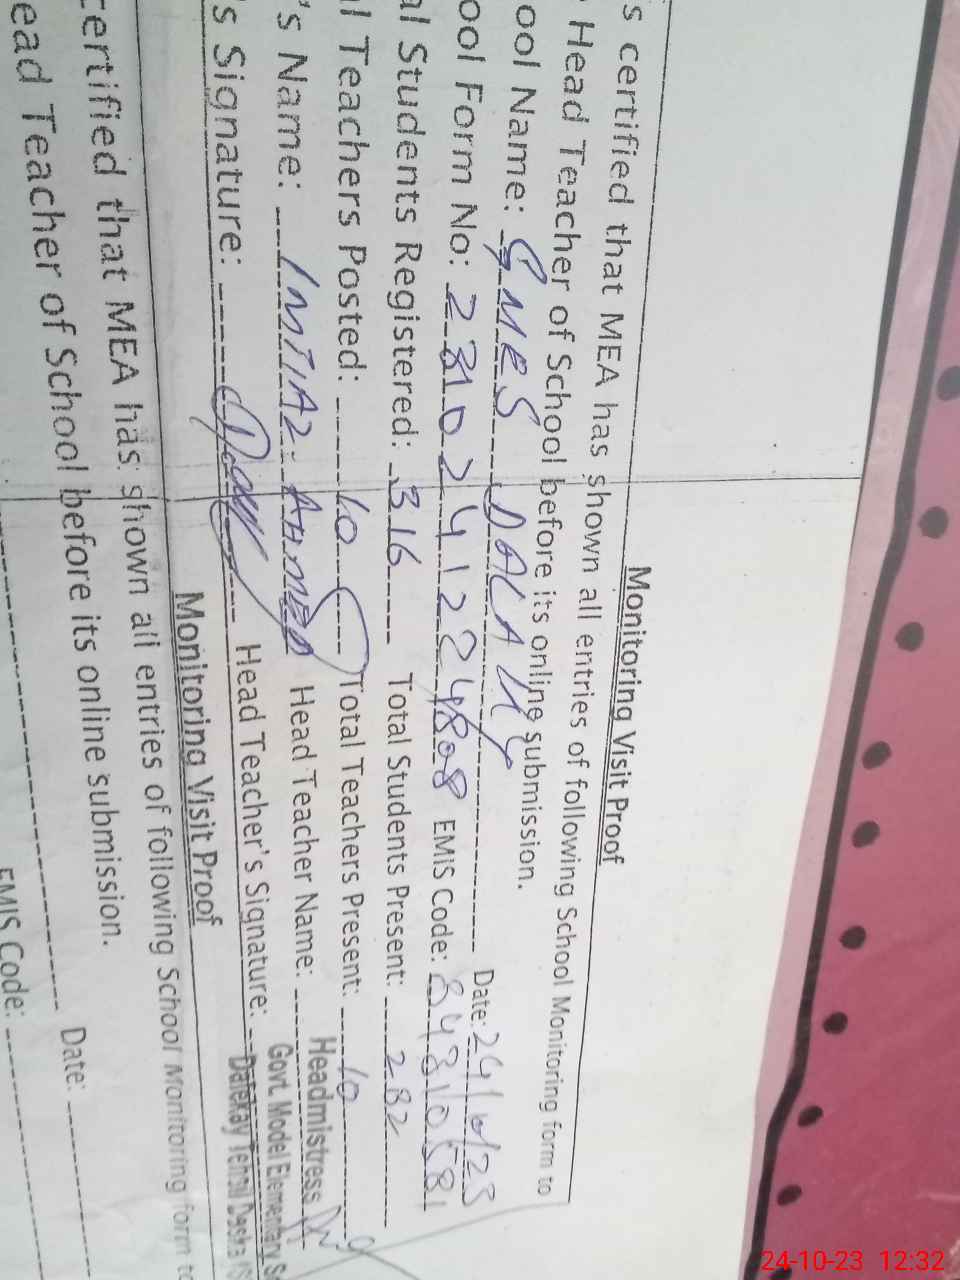 Monitoring Visit Proof
s certified that MEA has shown all entries of following School Monitoring form to
Head Teacher of School before its online submission.
ool Name: GMES DALAKY Date: 24/10/23
ool Form No: 2310241224808 EMIS Code: 84310581
al Students Registered: 316 Total Students Present: 282
l Teachers Posted: 10 Total Teachers Present: 10
's Name: IMTIAZ AHMED Head Teacher Name: Headmistress
s Signature: Head Teacher's Signature: Govt. Model Elementary S
Dalekay Tehsil Daska
Monitoring Visit Proof
certified that MEA has shown all entries of following School Monitoring form to
ead Teacher of School before its online submission.
Date:
EMIS Code:
24-10-23 12:32